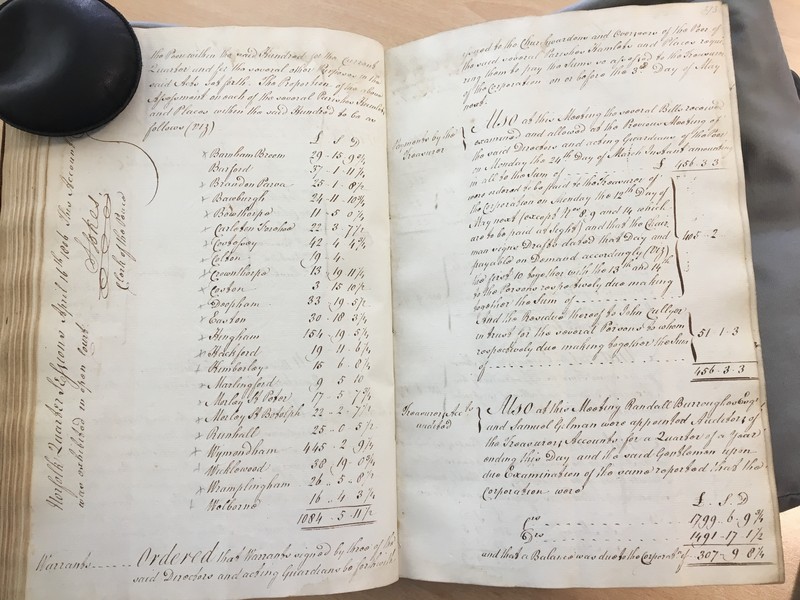 the Poor within the said Hundred for the Current
Quarter and for the several other Purposes in the
said Acts set forth. The Proportion of the above
Assessment on each of the several Parishes Hamlets
and Places within the said Hundred to be as
follows (Viz)
£ S D
x Barnham Broom 29 - 15 - 9¾
Burford 37 - 1 - 11¼
x Brandon Parva 25 - 1 - 8½
x Bawburgh 24 - 11 - 10¾
x Bowthorpe 11 - 5 - 0¼
x Carleton Forehoe 22 - 3 - 7½
x Costessey 42 - 4 - 4¾
x Colton 19 - 4 -
x Crownthorpe 13 - 19 - 11¼
x Coston 3 - 15 - 10½
x Deopham 33 - 19 - 5½
x Easton 30 - 18 - 3¼
x Hingham 154 - 19 - 5¼
x Hackford 19 - 11 - 6¼
x Kimberley 15 - 6 - 8¼
x Marlingford 9 - 5 - 10
x Morley St Peter 17 - 5 - 7¾
x Morley St Botolph 22 - 2 - 7½
x Runhall 25 - 0 - 5½
x Wymondham 445 - 2 - 9¼
x Wicklewood 38 - 19 - 0¾
x Wramplingham 26 - 5 - 8½
x Welborne 16 - 4 - 3¾
1084 - 5 - 11½
Warrants Ordered that Warrants signed by three of the
said Directors and acting Guardians be forthwith
Norfolk Quarter Sessions April 16th 1806 This Account
was exhibited in open Court
Stokes
Clerk of the Peace
issued to the Churchwardens and Overseers of the Poor of
the said several Parishes Hamlets and Places requi
ring them to pay the same so assessed to the Treasurer
of the Corporation on or before the 3d Day of May
next.
Payments by the
Treasurer
Also at this Meeting the several Bills received
examined and allowed at the Previous Meeting of
the said Directors and acting Guardians of the Poor
on Monday the 24th Day of March Instant amounting
in all to the Sum of £ 456 - 3 - 3
were ordered to be paid by the Treasurer of
the Corporation on Monday the 12th Day of
May next (except No 8, 9 and 14 which
are to be paid at Sight) and that the Chair
man signs Drafts dated that Day and
payable on Demand accordingly (Viz)
the first 10 together with the 13th and 14th
to the Persons respectively due making
together the Sum of 405 - 2
And the Residue thereof to John Cullyer
in trust for the several Persons to whom
respectively due making together the Sum
of 51 - 1 - 3
456 - 3 - 3
Treasurers Acc to
audited
Also at this Meeting Randall Burroughes Esqr
and Samuel Gilman were appointed Auditors of
the Treasurers Accounts for a Quarter of a Year
ending this Day and the said Gentlemen upon
due Examination of the same reported that the
Corporation were
£ S D
Crs 1799 - 6 - 9¾
Drs 1491 - 17 - 1½
and that a Balance was due to the Corporatn of 307 - 9 - 8¼